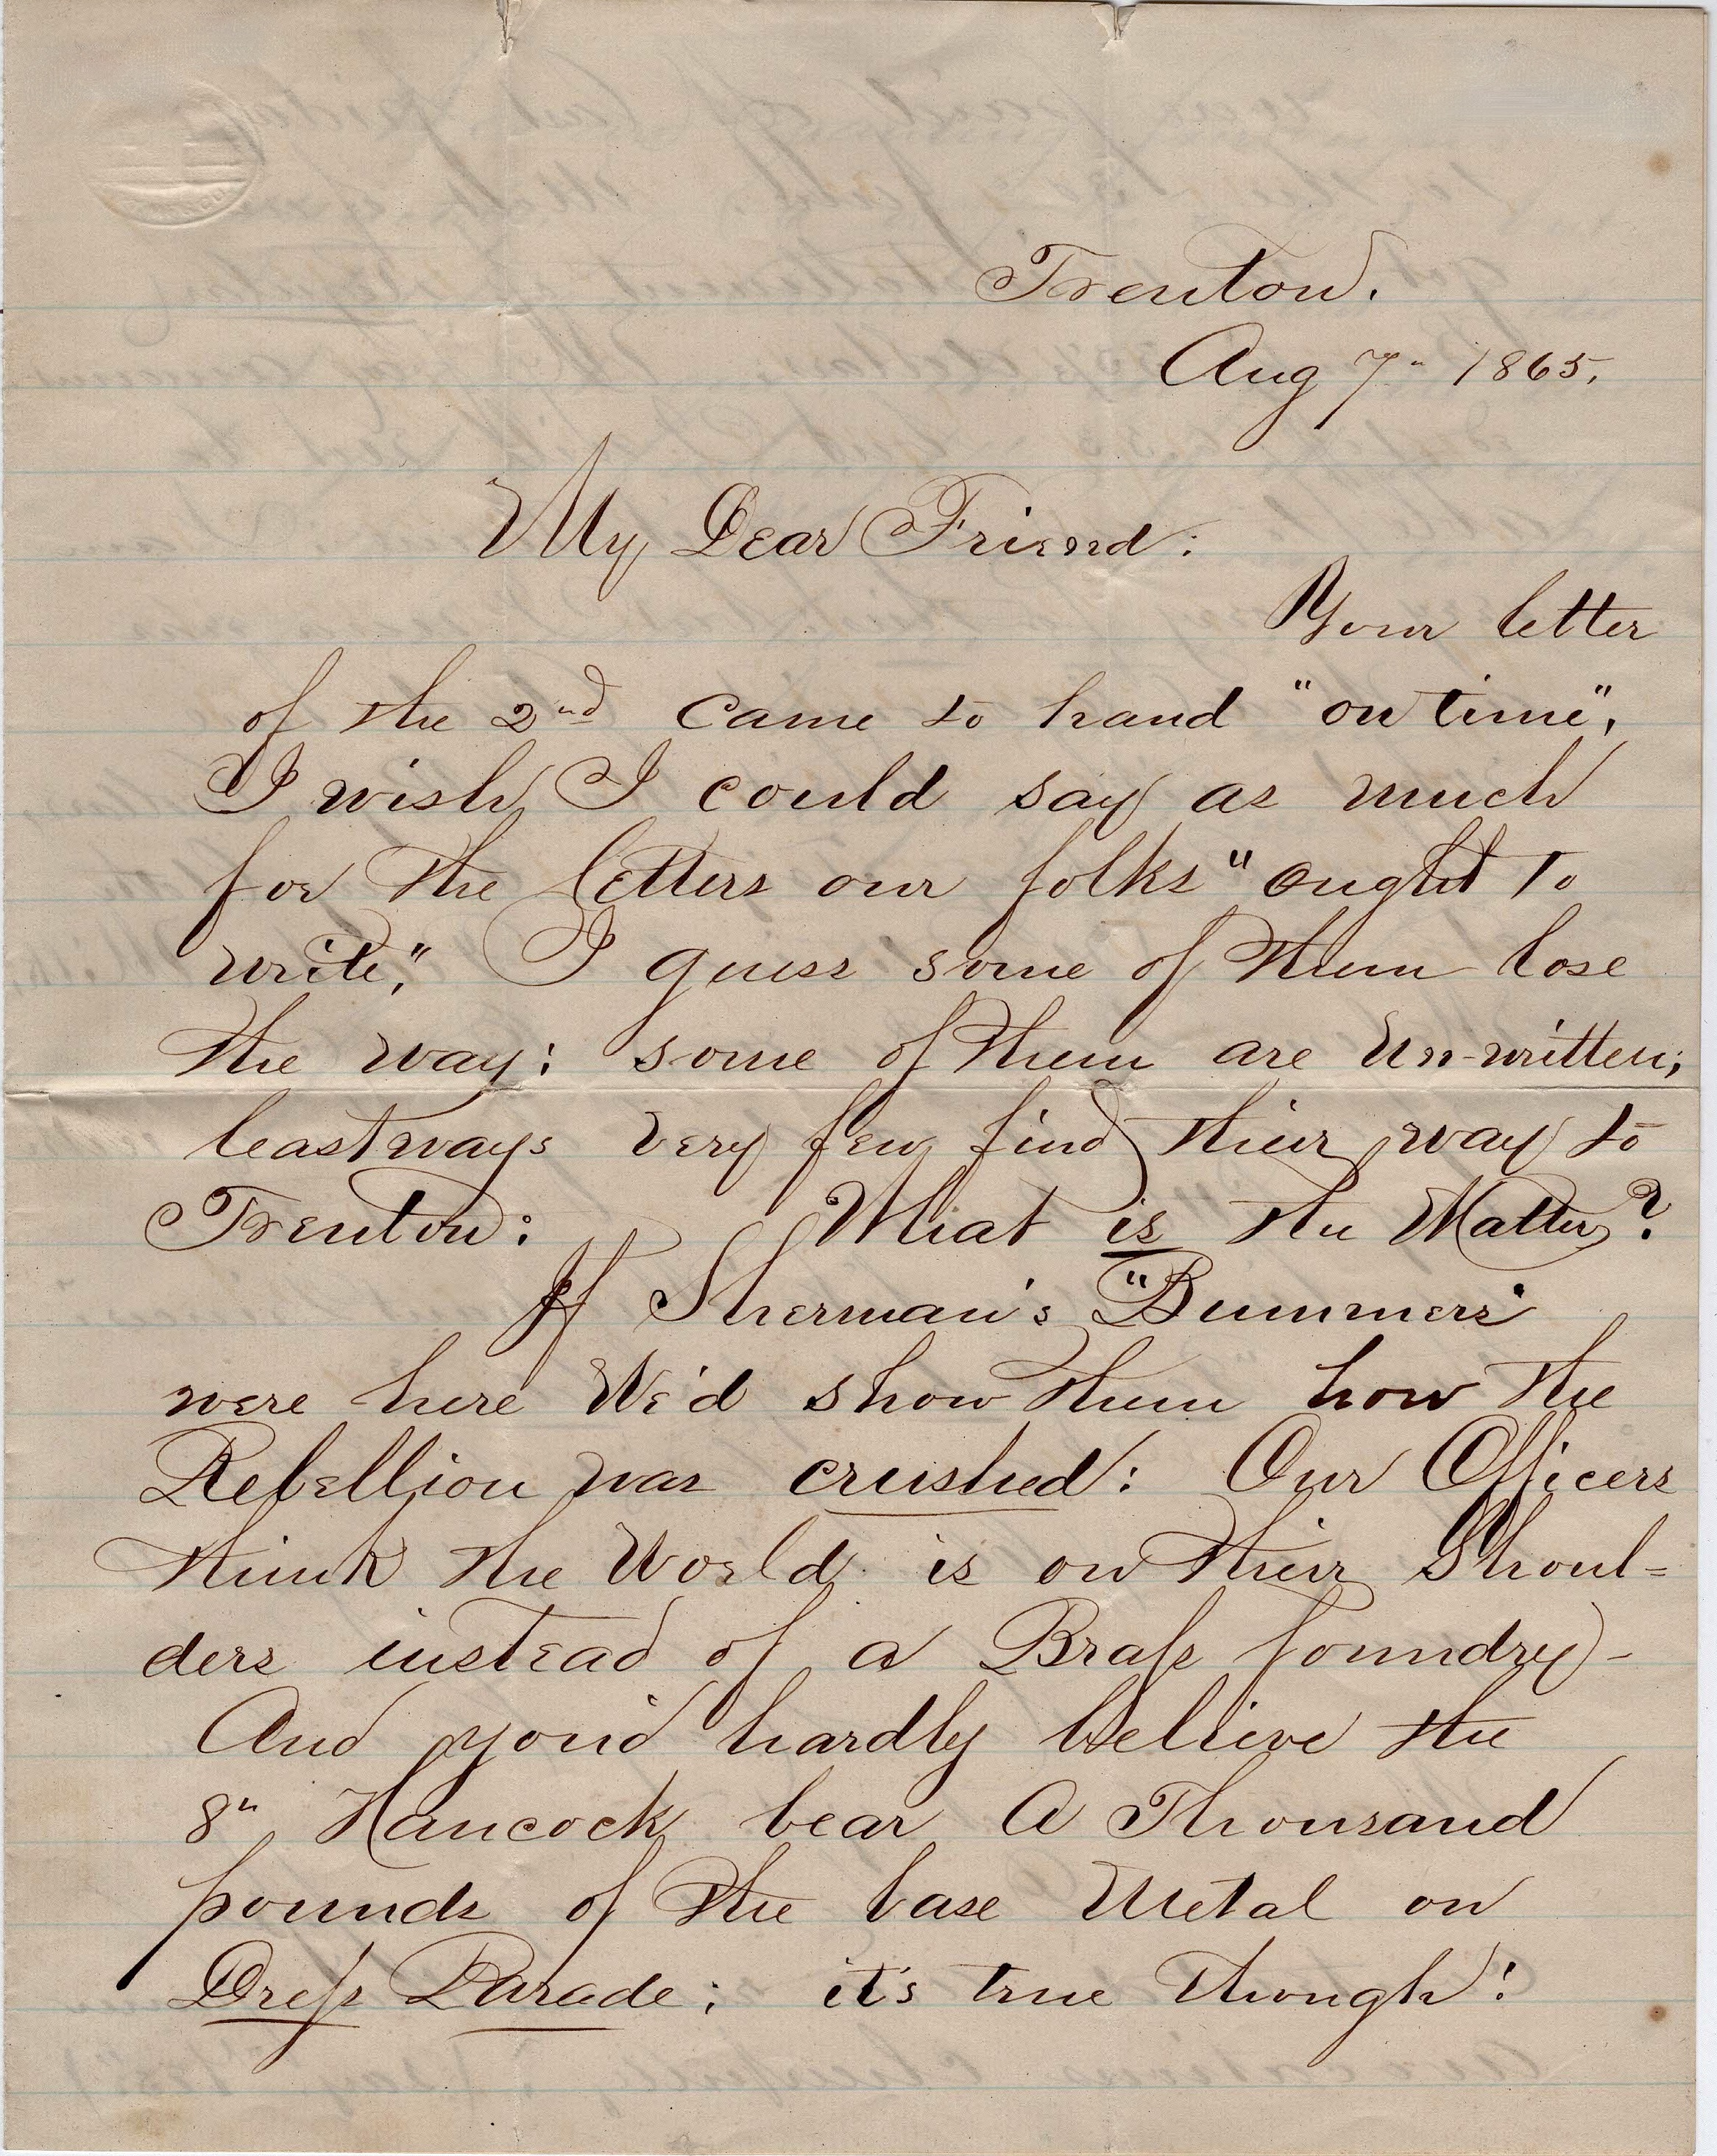 Trenton.
Aug 7" 1865.
My Dear Friend:
Your letter
of the 2nd came to hand "on time",
I wish I could say as much
for the letters our folks "ought to
write;" I guess some of them lose
the way: some of them are Un-written;
leastways very few find their way to
Trenton: What is the Matter?
If Sherman's "Bummers"
were here We'd show them how the
Rebellion was crushed: Our Officers
think the World is on their Shoul=
ders instead of a Braſs foundry-
And you'd hardly believe the
8" Hancock bear a Thousand
pounds of the base Metal on
Dreſs Parade; it's true though!